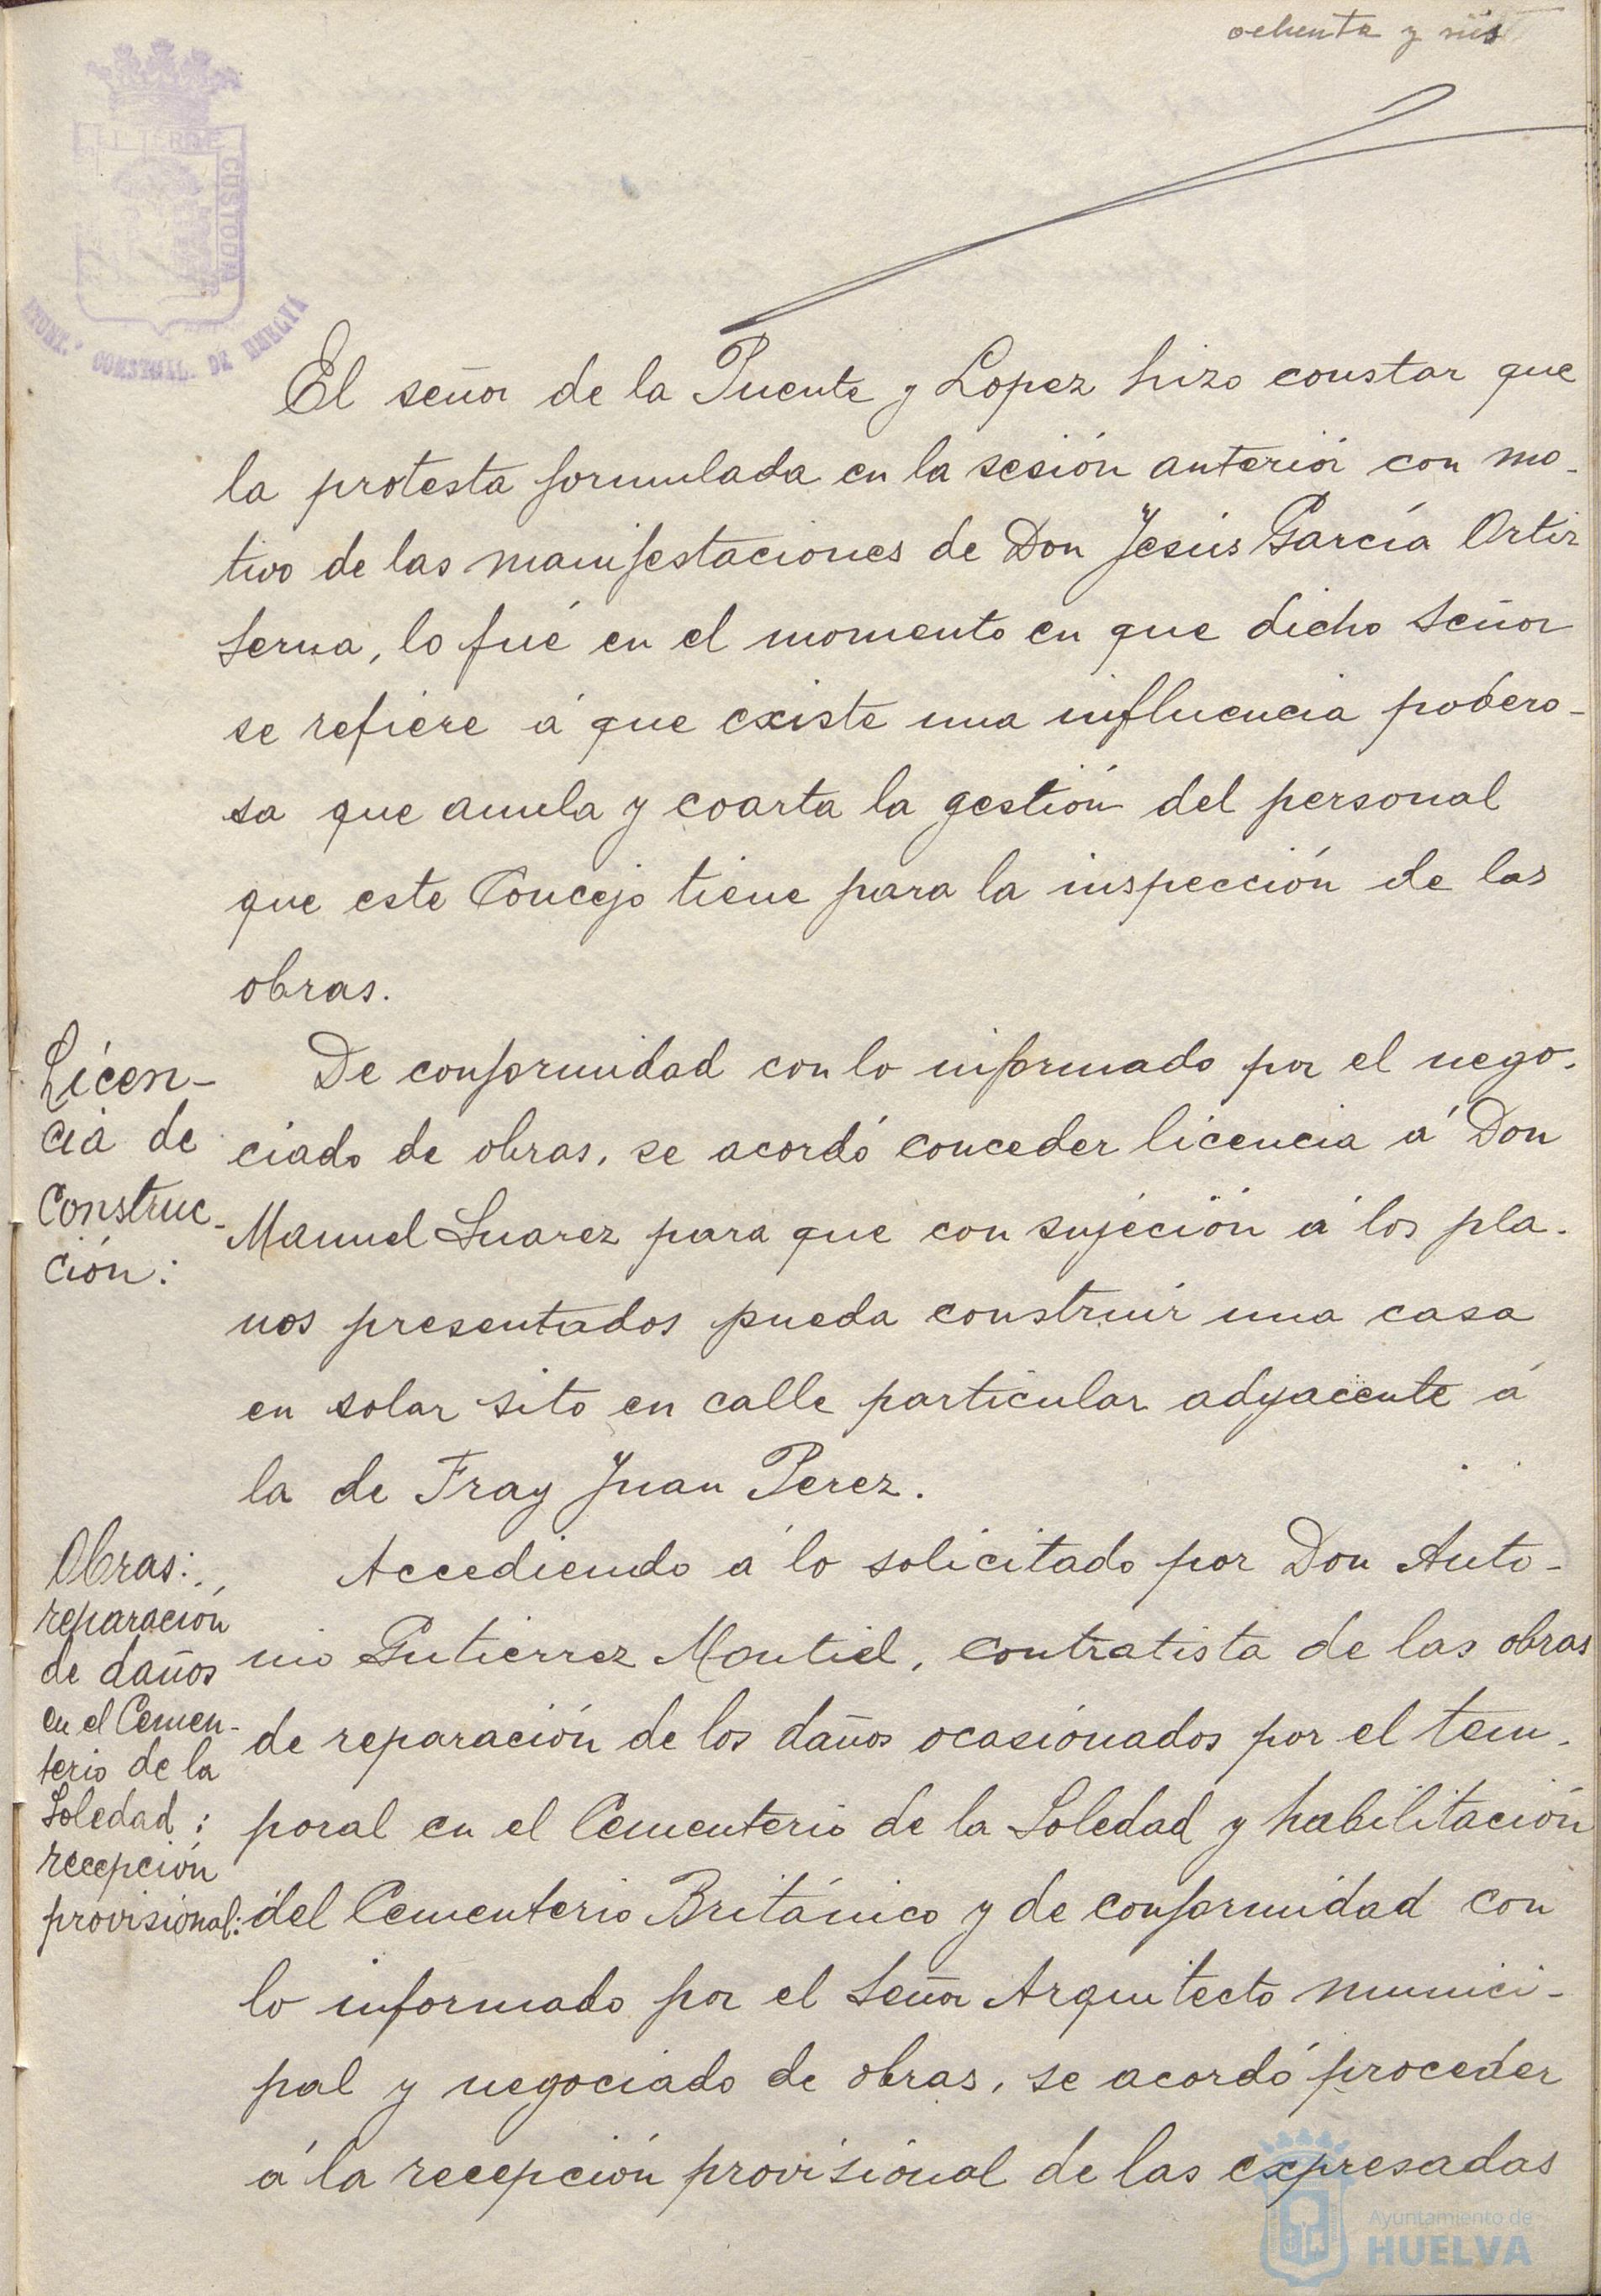 ochenta y seis
CUSTODIA
AYUNT.º CONSTNAL. DE HUELVA
El señor de la Puente y Lopez hizo constar que
la protesta formulada en la sesión anterior con mo-
tivo de las manifestaciones de Don Jesús García Ortiz
Serna, lo fué en el momento en que dicho Señor
se refiere á que existe una influencia podero-
sa que anula y coarta la gestión del personal
que este Concejo tiene para la inspección de las
obras.
Licen-
cia de
Construc-
ción:
De conformidad con lo informado por el nego-
ciado de obras, se acordó conceder licencia á Don
Manuel Suarez para que con sujeción á los pla-
nos presentados pueda construir una casa
en solar sito en calle particular adyacente á
la de Fray Juan Perez.
Obras:
reparación
de daños
en el Cemen-
terio de la
Soledad:
recepción
provisional:
Accediendo á lo solicitado por Don Anto-
nio Gutierrez Montiel, contratista de las obras
de reparación de los daños ocasionados por el tem-
poral en el Cementerio de la Soledad y habilitación
del Cementerio Británico y de conformidad con
lo informado por el Señor Arquitecto munici-
pal y negociado de obras, se acordó proceder
á la recepción provisional de las expresadas
Ayuntamiento de
HUELVA